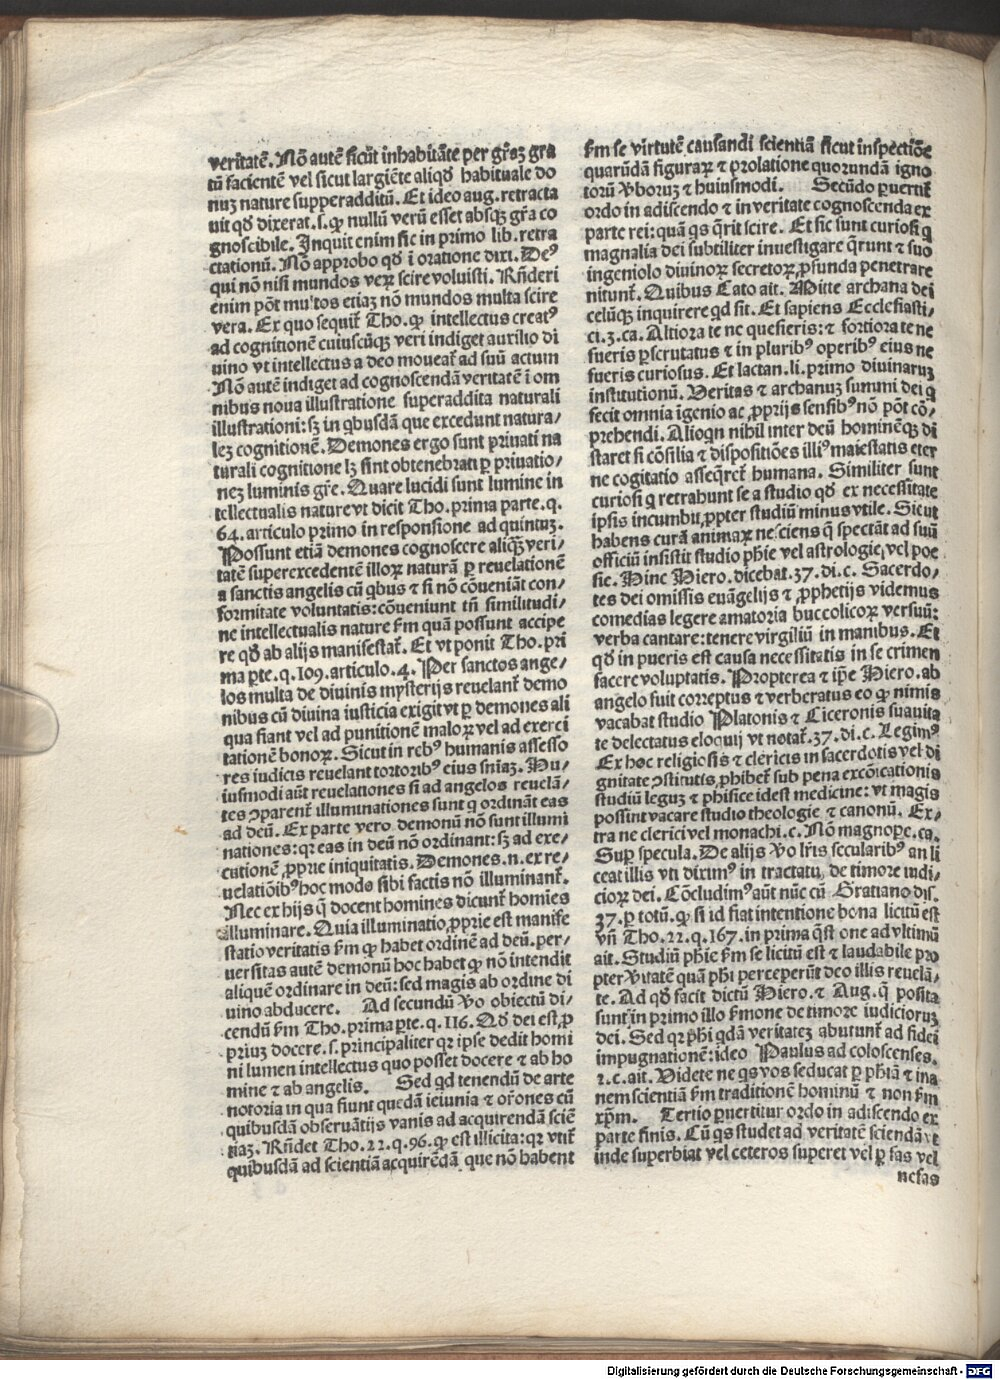 veritatē. Nō autē sicut inhabitāte per gr̄aꝫ gra
tū facientē vel sicut largiēte aliqđ habituale do
nuꝫ nature supperadditū. Et ideo aug. retracta
uit qđ dixerat .s. ꝙ nullū verū esset absqꝫ gr̄a co
gnoscibile. Inquit enim sic in primo lib. retra
ctationū. Nō approbo qđ ī oratione dixi. Deꝰ
qui nō nisi mundos veꝝ scire voluisti. Rn̄deri
enim pōt multos etiaꝫ nō mundos multa scire
vera. Ex quo sequit̄ Tho. ꝙ intellectus creatꝰ
ad cognitionē cuiuscūqꝫ veri indiget auxilio di
uino vt intellectus a deo moueat̄ ad suū actum
Nō autē indiget ad cognoscendā veritatē ī om
nibus noua illustratione superaddita naturali
illustrationi: sꝫ in qbusdā que excedunt natura/
leꝫ cognitionē. Demones ergo sunt priuati na
turali cognitione lꝫ sint obtenebrati ꝑ priuatio/
neꝫ luminis gr̄e. Quare lucidi sunt lumine in
tellectualis nature vt dicit Tho. prima parte. q.
64. articulo primo in responsione ad quintuꝫ.
Possunt etiā demones cognoscere aliqꝫ veri/
tatē superexcedentē illoꝝ naturā ꝑ reuelationē
a sanctis angelis cū qbus ⁊ si nō cōueniāt con/
formitate voluntatis: cōueniunt tn̄ similitudi/
ne intellectualis nature ẜm quā possunt accipe
re qđ ab alijs manifestat̄. Et vt ponit Tho. pri
ma ꝑte. q. 109. articulo. 4. Per sanctos ange/
los multa de diuinis mysterijs reuelant̄ demo
nibus cū diuina iusticia exigit vt ꝑ demones ali
qua fiant vel ad punitionē maloꝝ vel ad exerci
tationē bonoꝝ. Sicut in rebꝰ humanis assesso
res iudicis reuelant tortoribꝰ eius sn̄iaꝫ. Hu/
iusmodi aūt reuelationes si ad angelos reuelā/
tes ꝯparent̄ illuminationes sunt q ordināt eas
ad deū. Ex parte vero demonū nō sunt illumi
nationes: qꝛ eas in deū nō ordinant: sꝫ ad exe/
cutionē ꝓprie iniquitatis. Demones .n. ex re/
uelatiōibꝰ hoc modo sibi factis nō illuminant̄.
Nec ex hijs q̄ docent homines dicunt̄ homīes
illuminare. Quia illuminatio ꝓprie est manife
statio veritatis ẜm ꝙ habet ordinē ad deū. per/
uersitas autē demonū hoc habet ꝙ nō intendit
aliquē ordinare in deū: sed magis ab ordine di
uino abducere. Ad secundū ꝟo obiectū di/
cendū ẜm Tho. prima ꝑte. q. 116. Qđ dei est ꝓ
priuꝫ docere .s. principaliter qꝛ ipse dedit homi
ni lumen intellectus quo posset docere ⁊ ab ho
mine ⁊ ab angelis. Sed qd tenendū de arte
notoria in qua fiunt quedā ieiunia ⁊ or̄ones cū
quibusdā obseruātijs vanis ad acquirendā sciē
tiaꝫ. Rn̄det Tho. 22. q. 96. ꝙ est illicita: qꝛ vtit̄
quibusdā ad scientiā acquirēdā que nō habent
ẜm se virtutē causandi scientiā sicut inspectiōe
quarūdā figuraꝝ ⁊ ꝓlatione quorundā igno
torū ꝟboruꝫ ⁊ huiusmodi. Secūdo ꝑuertit̄
ordo in adiscendo ⁊ in veritate cognoscenda ex
parte rei: quā qs q̄rit scire. Et sic sunt curiosi q
magnalia dei subtiliter inuestigare q̄runt ⁊ suo
ingeniolo diuinoꝝ secretoꝝ ꝓfunda penetrare
nitunt̄. Quibus Cato ait. Mitte archana dei
celūqꝫ inquirere qd sit. Et sapiens Ecclesiasti/
ci. 3. ca. Altiora te ne quesieris: ⁊ fortiora te ne
fueris ꝑscrutatus ⁊ in pluribꝰ operibꝰ eius ne
fueris curiosus. Et lactan. li. primo diuinaruꝫ
institutionū. Veritas ⁊ archanuꝫ summi dei q
fecit omnia īgenio ac ꝓprijs sensibꝰ nō pōt cō/
prehendi. Alioqn nihil inter deū hominēqꝫ di
staret si cōsilia ⁊ dispositiōes illiꝰ maiestatis eter
ne cogitatio asseq̄ret̄ humana. Similiter sunt
curiosi q retrahunt se a studio qđ ex necessitate
ipsis incumbit ꝓpter studiū minus vtile. Sicut
habens curā animaꝝ nesciens q̄ spectāt ad suū
officiū insistit studio ph̄ie vel astrologie vel poe
sie. Hinc Hiero. dicebat. 37. di. c. Sacerdo/
tes dei omissis euāgelijs ⁊ ꝓphetijs videmus
comedias legere amatoria buccolicoꝝ versuū:
verba cantare: tenere virgiliū in manibus. Et
qđ in pueris est causa necessitatis in se crimen
facere voluptatis. Propterea ⁊ ip̄e Hiero. ab
angelo fuit correptus ⁊ verberatus eo ꝙ nimis
vacabat studio Platonis ⁊ Ciceronis suauita
te delectatus eloquij vt notat̄. 37. di. c. Legimꝰ
Ex hoc religiosis ⁊ clericis in sacerdotis vel di
gnitate ꝯstitutis ꝓhibet̄ sub pena excōicationis
studiū leguꝫ ⁊ phisice idest medicine: vt magis
possint vacare studio theologie ⁊ canonū. Ex/
tra ne clerici vel monachi. c. Nō magnoꝑe. c. ca.
Suꝑ specula. De alijs ꝟo lr̄is secularibꝰ an li
ceat illis vti diximꝰ in tractatu de timore iudi/
cioꝝ dei. Cōcludimꝰ aūt nūc cū Gratiano dis.
37. ꝑ totū. ꝙ si id fiat intentione bona licitū est
vn̄ Tho. 22. q. 167. in prima q̄stione ad vltimū
ait. Studiū ph̄ie ẜm se licitū est ⁊ laudabile pro
pter ꝟitatē quā ph̄i perceperūt deo illis reuelā/
te. Ad qđ facit dictū Hiero. ⁊ Aug. q̄ posita
sunt in primo illo ẜmone de timore iudicioruꝫ
dei. Sed qꝛ ph̄i qdā veritateꝫ abutunt̄ ad fidei
impugnationē: ideo Paulus ad coloscenses.
2. c. ait. Videte ne qs vos seducat ꝑ ph̄iā ⁊ ina
nem scientiā ẜm traditionē hominū ⁊ non ẜm
xp̄m. Tertio ꝑuertitur ordo in adiscendo ex
parte finis. Cū qs studet ad veritatē sciendā vt
inde superbiat vel ceteros superet vel ꝑ fas vel
nefas
Digitalisierung gefördert durch die Deutsche Forschungsgemeinschaft - DFG